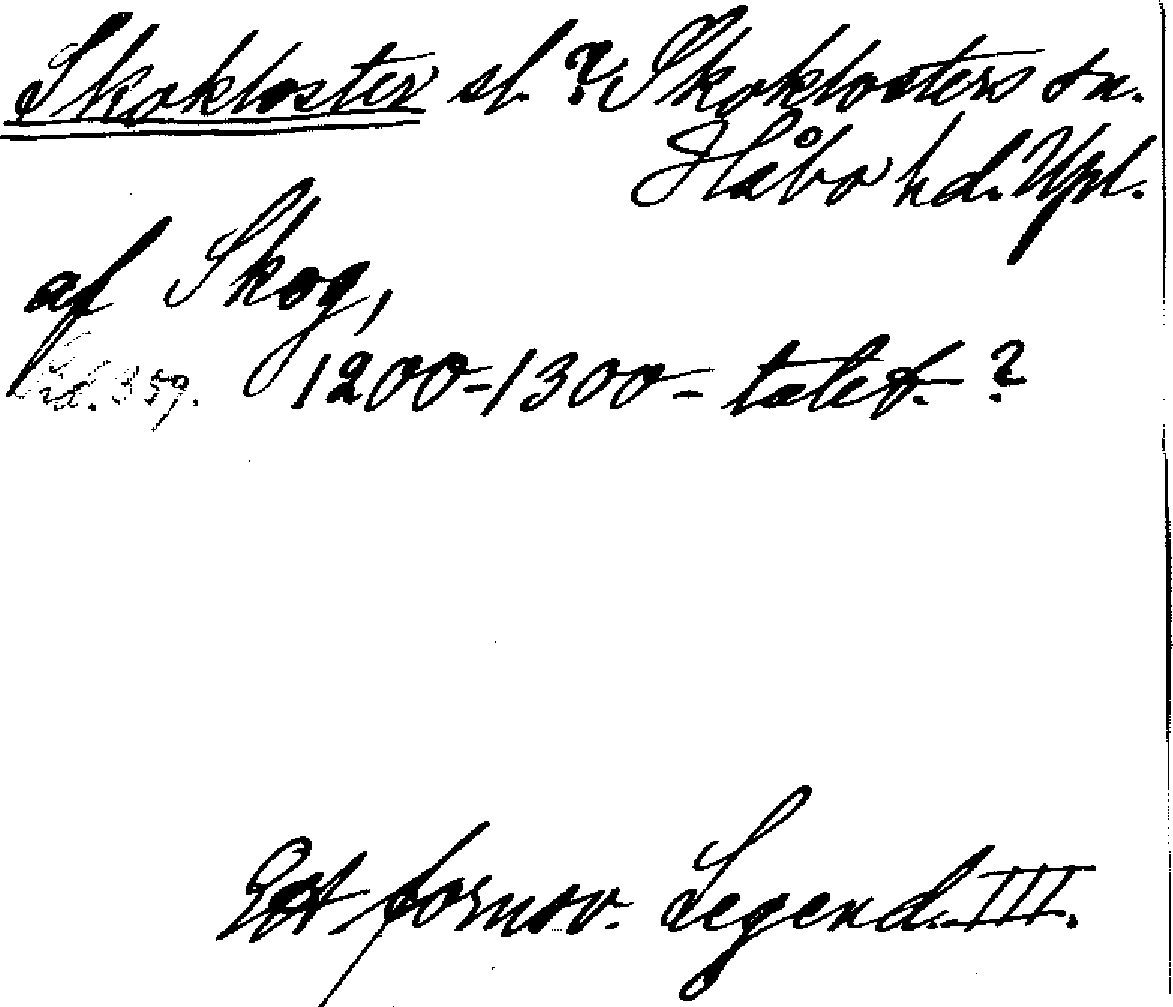 Skokloster sl. ? Skoklosters sn.
Håbo hd. Upl.
af Skog,
Sid. 359. 1200-1300-talet. ?
Ett fornsv. Legend. III.